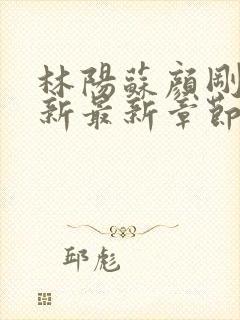 林陽蘇顏剛
新最新章節
邱彪